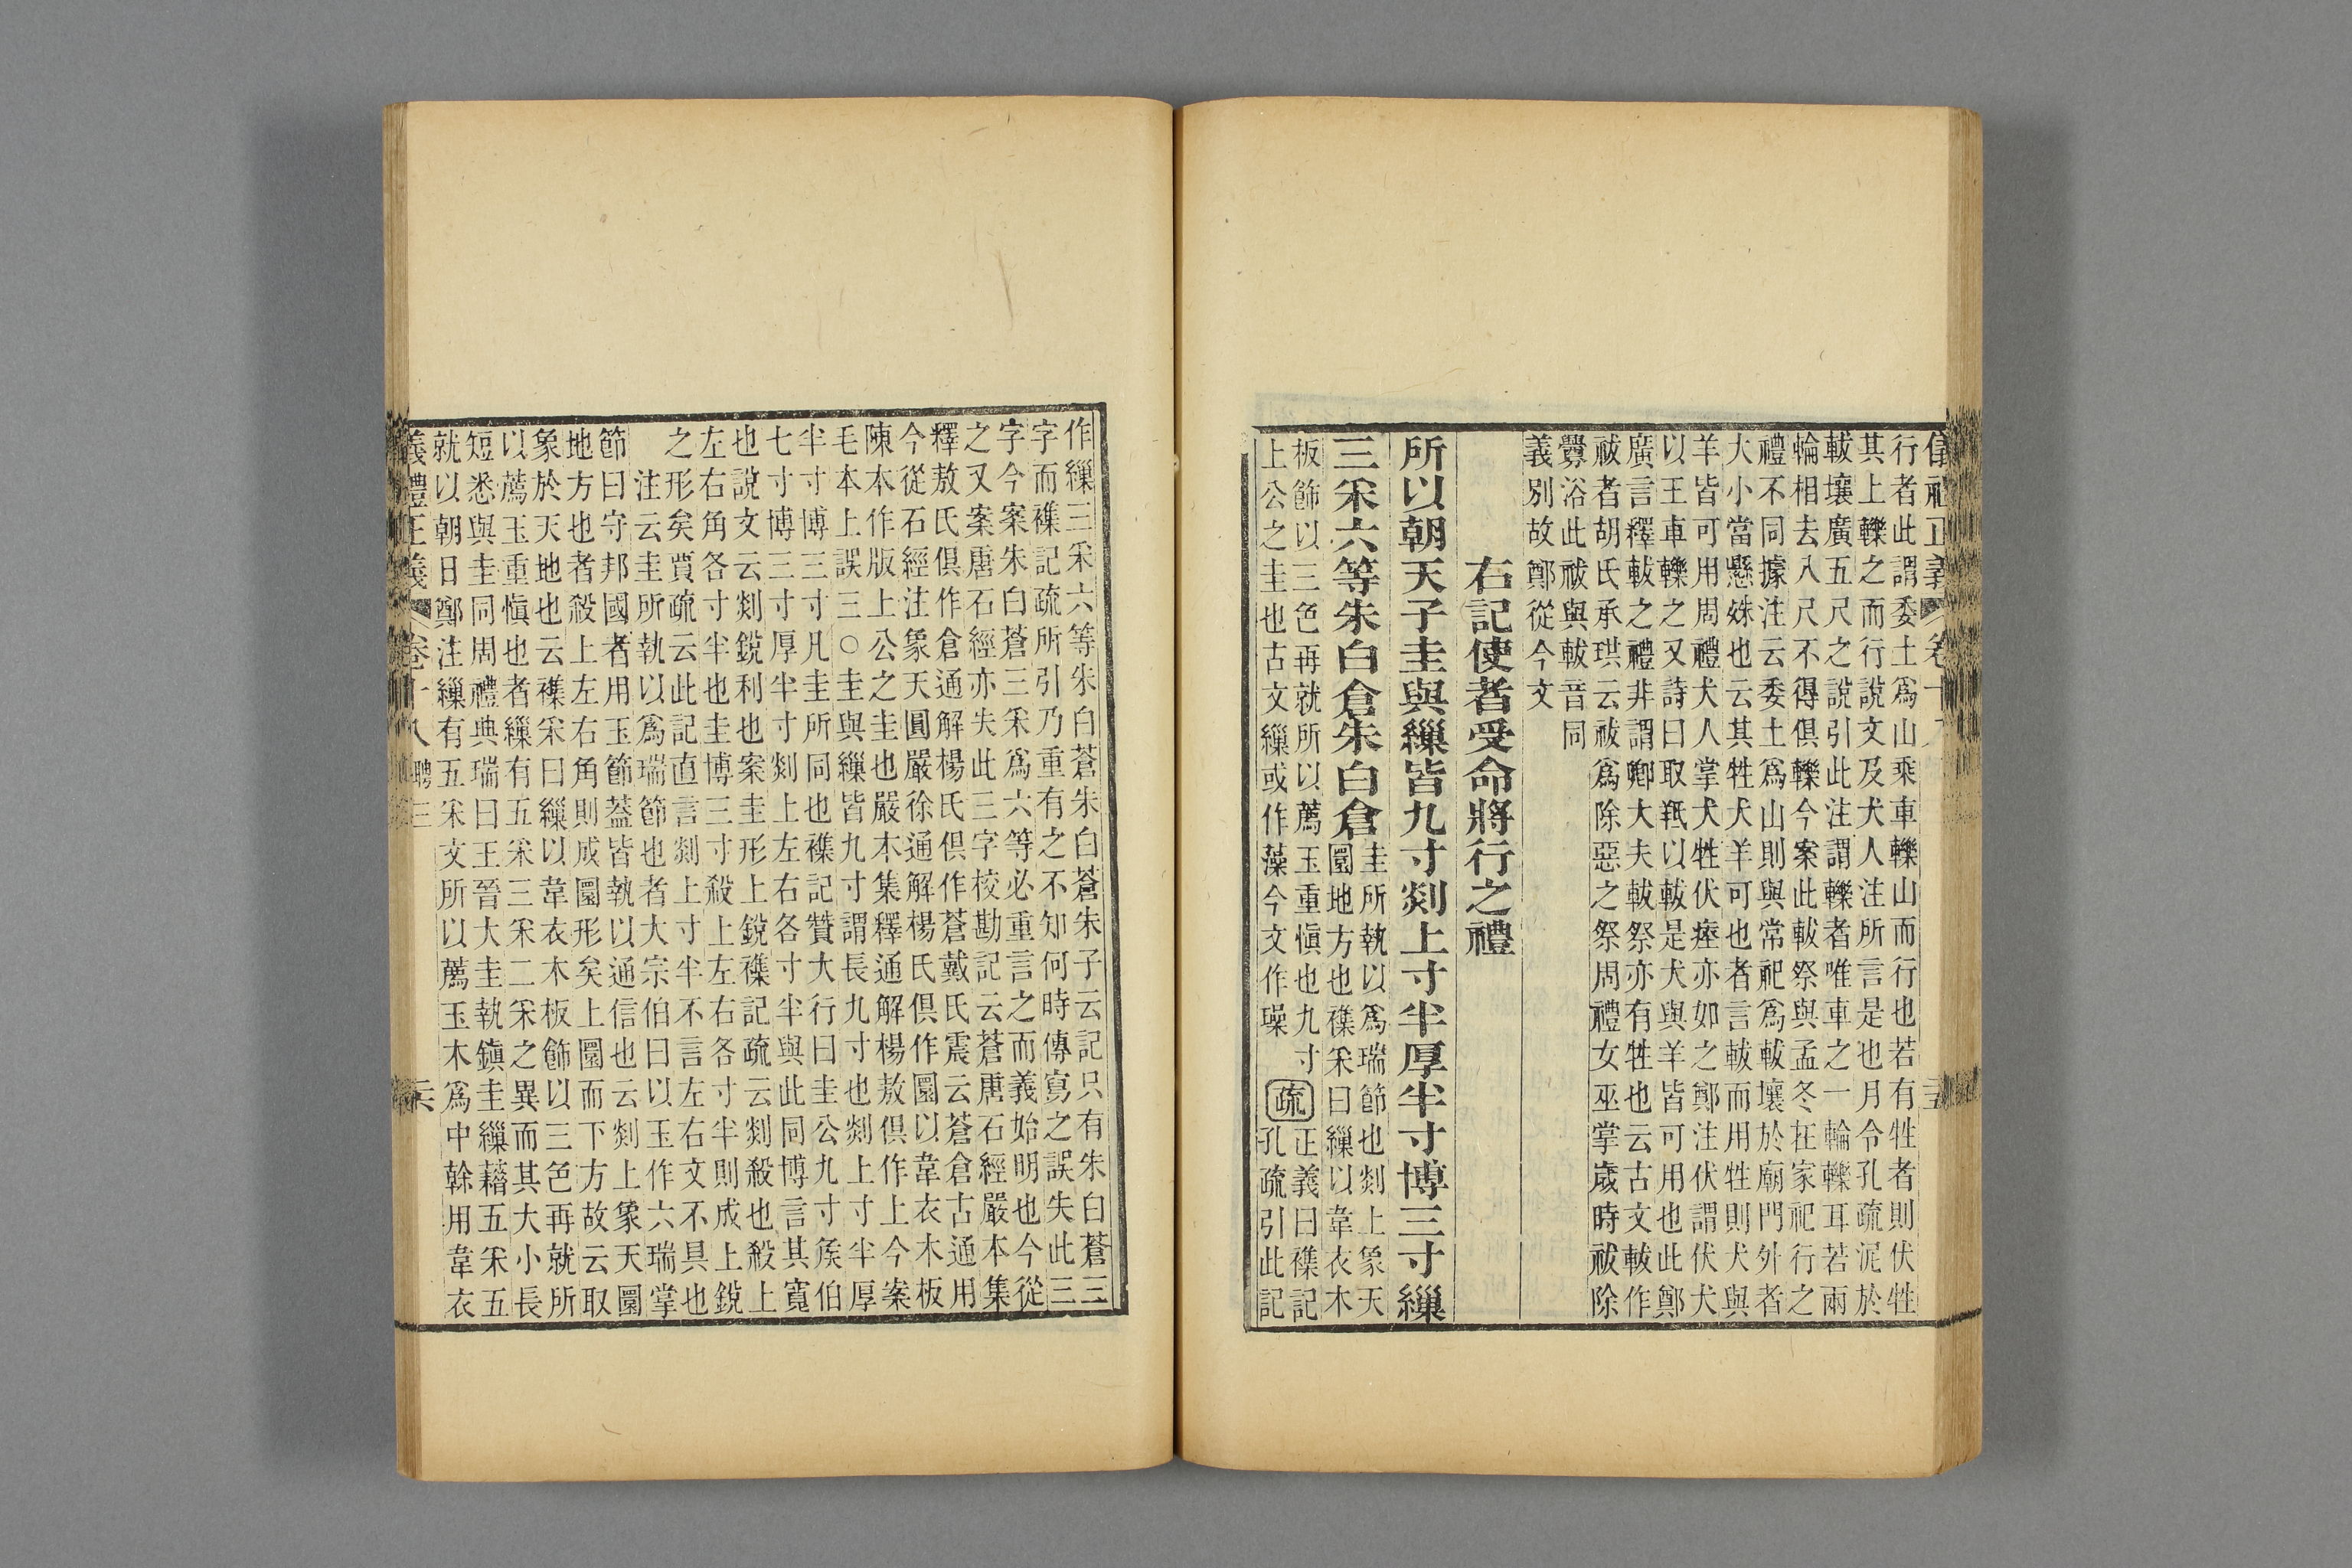 行者此謂委土爲山乘車轢山而行也若有牲者則伏牲
其上轢之而行說文及犬人注所言是也月令孔疏泥於
軷壤廣五尺之說引此注謂轢者唯車之一輪轢耳若兩
輪相去八尺不得俱轢今案此軷祭與孟冬在家祀行之
禮不同據注云委土爲山則與常祀爲軷壤於廟門外者
大小當懸殊也云其牲犬羊可也者言軷而用牲則犬與
羊皆可用周禮犬人掌犬牲伏瘞亦如之鄭注伏謂伏犬
以王車轢之又詩曰取羝以軷是犬與羊皆可用也此鄭
廣言釋軷之禮非謂卿大夫軷祭亦有牲也云古文軷作
祓者胡氏承珙云祓爲除惡之祭周禮女巫掌歲時祓除
釁浴此祓與軷音同
義別故鄭從今文
右記使者受命將行之禮
所以朝天子圭與繅皆九寸剡上寸半厚半寸博三寸繅
三采六等朱白倉朱白倉
圭所執以爲瑞節也剡上象天
圜地方也襍采曰繅以韋衣木
板飾以三色再就所以薦玉重愼也九寸
上公之圭也古文繅或作藻今文作璪
疏
正義曰襍記
孔疏引此記
作繅三采六等朱白蒼朱白蒼朱子云記只有朱白蒼三
字而襍記疏所引乃重有之不知何時傳寫之誤失此三
字今案朱白蒼三采爲六等必重言之而義始明也今從
之又案唐石經亦失此三字校勘記云蒼唐石經嚴本集
釋敖氏俱作倉通解楊氏俱作蒼戴氏震云蒼倉古通用
今從石經注象天圓嚴徐通解楊氏俱作圜以韋衣木板
陳本作版上公之圭也嚴本集釋通解楊敖俱作上今案
毛本上誤三○圭與繅皆九寸謂長九寸也剡上寸半厚
半寸博三寸凡圭所同也襍記贊大行曰圭公九寸侯伯
七寸博三寸厚半寸剡上左右各寸半與此同博言其寬
也說文云剡銳利也案圭形上銳襍記疏云剡殺也殺上
左右角各寸半也圭博三寸殺上左右各寸半則成上銳
之形矣賈疏云此記直言剡上寸半不言左右文不具也
注云圭所執以爲瑞節也者大宗伯曰以玉作六瑞掌
節曰守邦國者用玉節葢皆執以通信也云剡上象天圜
地方也者殺上左右角則成圜形矣上圜而下方故云取
象於天地也云襍采曰繅以韋衣木板飾以三色再就所
以薦玉重愼也者繅有五采三采二采之異而其大小長
短悉與圭同周禮典瑞曰王晉大圭執鎭圭繅藉五采五
就以朝日鄭注繅有五采文所以薦玉木爲中榦用韋衣
義禮正義 卷十八 聘三